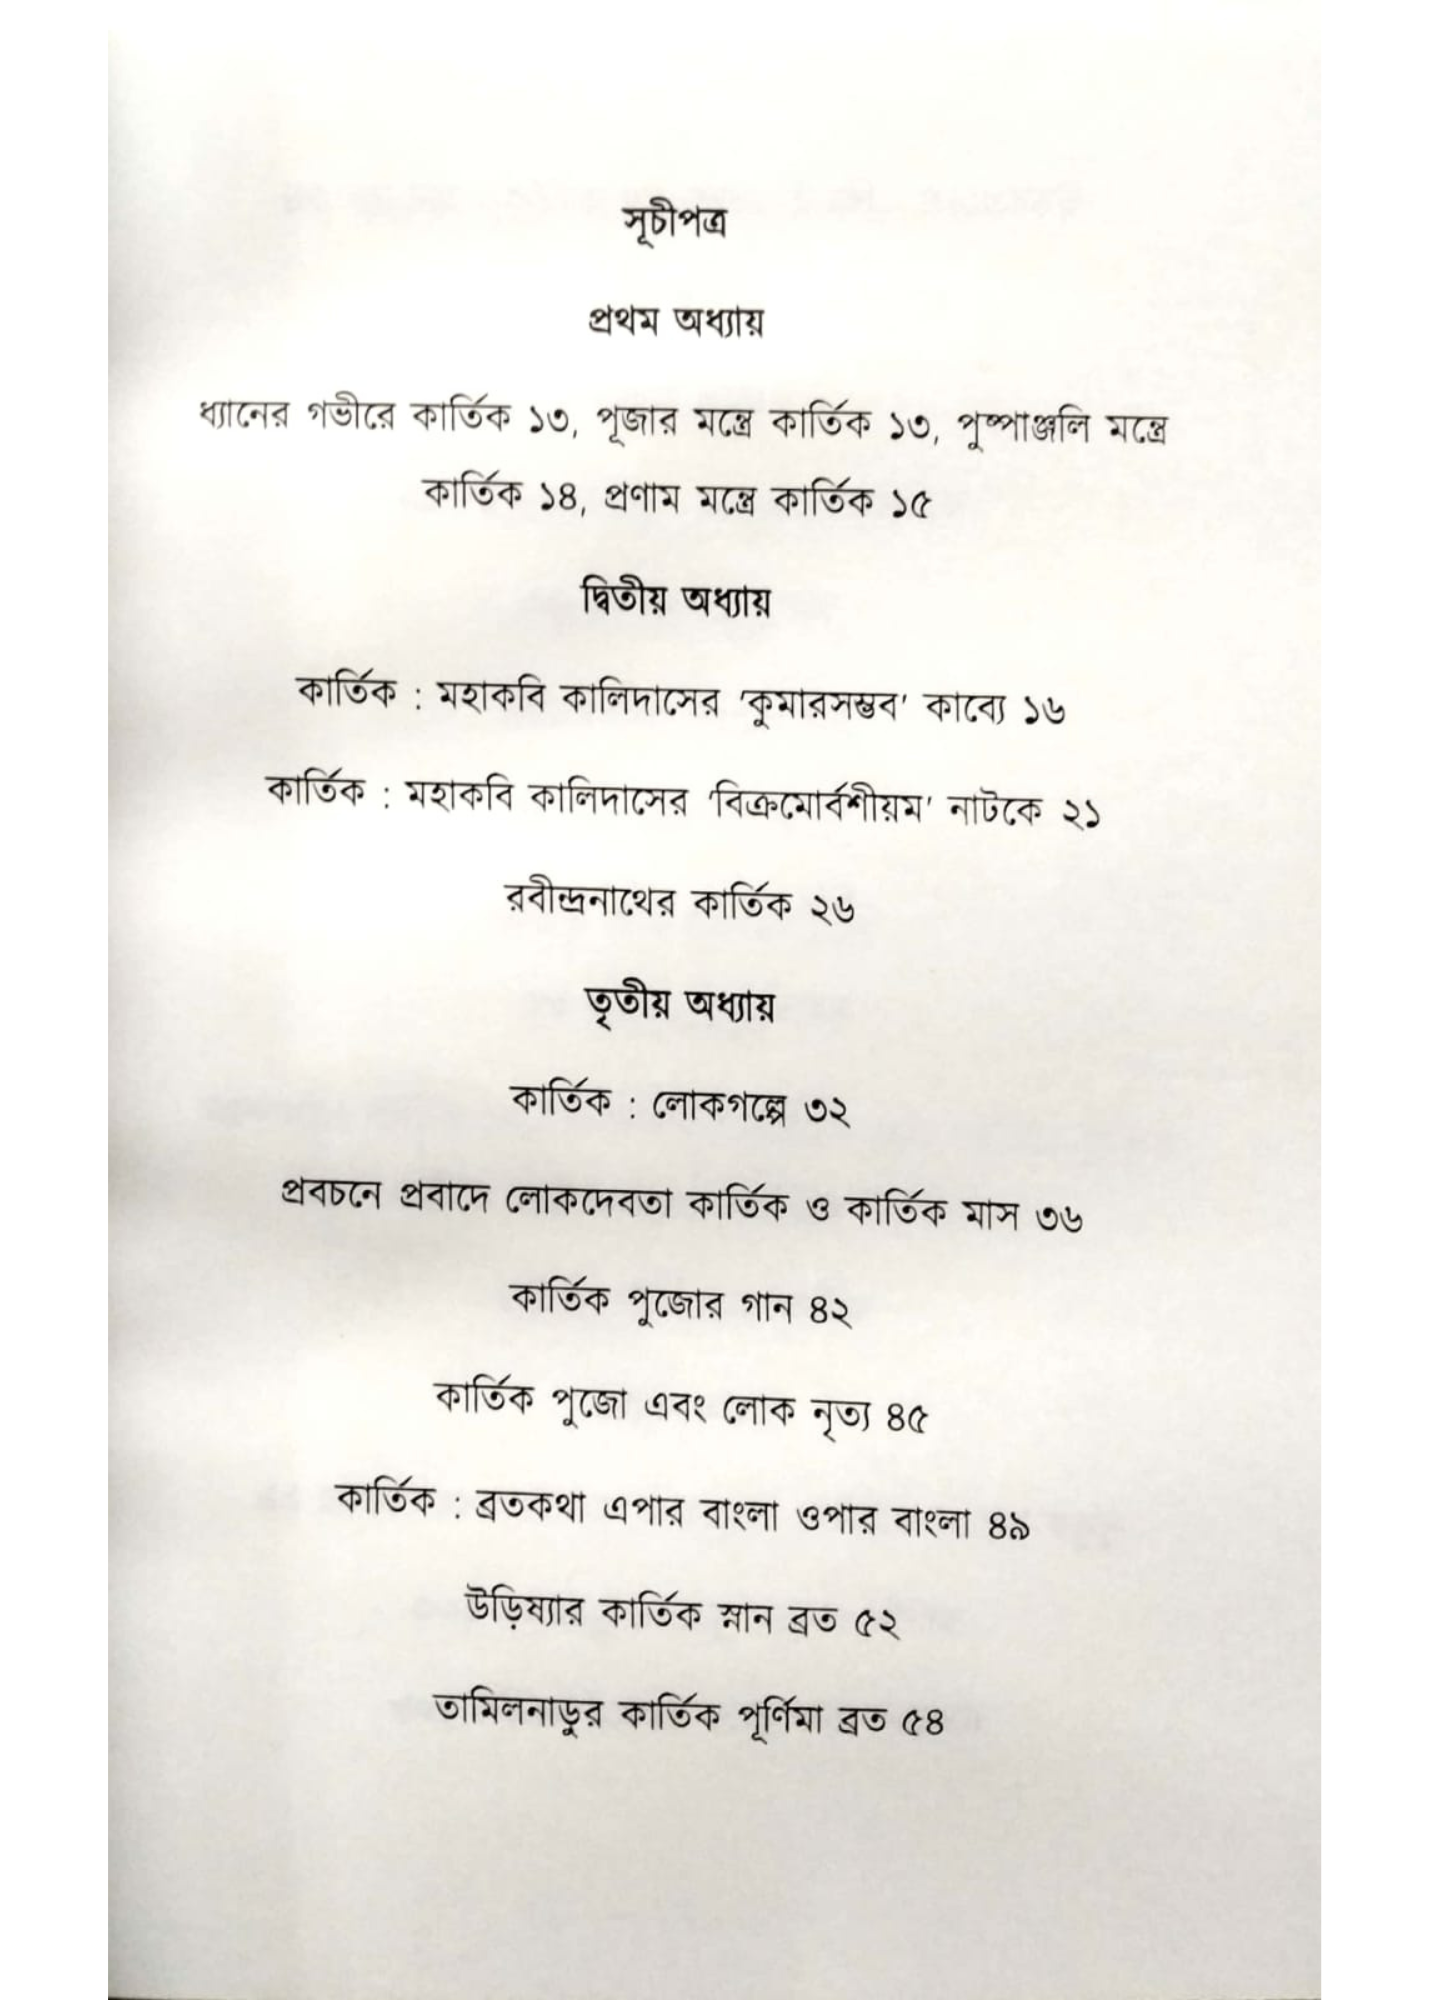 সূচীপত্র
প্রথম অধ্যায়
ধ্যানের গভীরে কার্তিক ১৩, পূজার মন্ত্রে কার্তিক ১৩, পুষ্পাঞ্জলি মন্ত্রে
কার্তিক ১৪, প্রণাম মন্ত্রে কার্তিক ১৫
দ্বিতীয় অধ্যায়
কার্তিক : মহাকবি কালিদাসের ‘কুমারসম্ভব’ কাব্যে ১৬
কার্তিক : মহাকবি কালিদাসের ‘বিক্রমোর্বশীয়ম’ নাটকে ২১
রবীন্দ্রনাথের কার্তিক ২৬
তৃতীয় অধ্যায়
কার্তিক : লোকগল্পে ৩২
প্রবচনে প্রবাদে লোকদেবতা কার্তিক ও কার্তিক মাস ৩৬
কার্তিক পুজোর গান ৪২
কার্তিক পুজো এবং লোক নৃত্য ৪৫
কার্তিক : ব্রতকথা এপার বাংলা ওপার বাংলা ৪৯
উড়িষ্যার কার্তিক স্নান ব্রত ৫২
তামিলনাড়ুর কার্তিক পূর্ণিমা ব্রত ৫৪